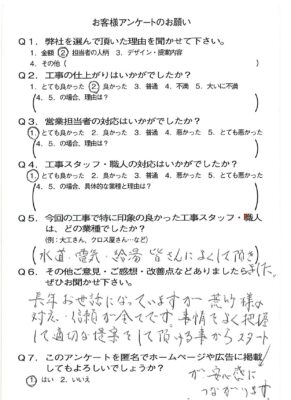 お客様アンケートのお願い
Q1．弊社を選んで頂いた理由を聞かせて下さい。
1．金額 2．担当者の人柄 3．デザイン・提案内容
4．その他（ ）
Q2．工事の仕上がりはいかがでしたか？
1．とても良かった 2．良かった 3．普通 4．不満 5．大いに不満
4．5．の場合、理由は？
Q3．営業担当者の対応はいかがでしたか？
1．とても良かった 2．良かった 3．普通 4．悪かった 5．とても悪かった
4．5．の場合、理由は？
Q4．工事スタッフ・職人の対応はいかがでしたか？
1．とても良かった 2．良かった 3．普通 4．悪かった 5．とても悪かった
4．5．の場合、具体的な業種と理由は？
Q5．今回の工事で特に印象の良かった工事スタッフ・職人
は、どの業種でしたか？
（例：大工さん、クロス屋さん…など）
水道・電気・給湯 皆さんによくして頂き
ました。
Q6．その他ご意見・ご感想・改善点などありましたら
ぜひお聞かせ下さい。
長年お世話になっていますが 様の
対応・信頼が全てです。事情をよく把握
して適切な提案をして頂ける事からスタート
が安心感に
つながります
Q7．このアンケートを匿名でホームページや広告に掲載
してもよろしいでしょうか？
1．はい 2．いいえ